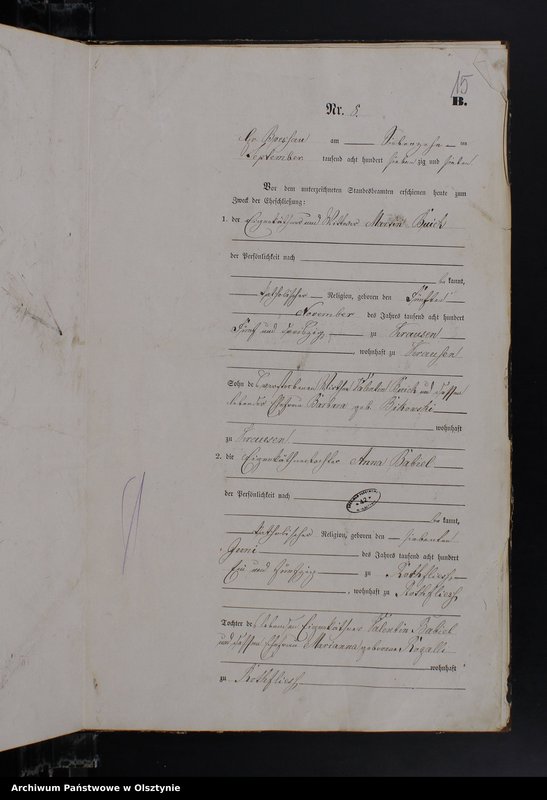 15
B.
Nr. 8.
Gr. Boessau am Siebenzehn ten
September tausend acht hundert sieben zig und sieben
Vor dem unterzeichneten Standesbeamten erschienen heute zum
Zweck der Eheschließung:
1. der Eigenkäthner und Wittwer Martin
der Persönlichkeit nach
be kannt,
katholischer Religion, geboren den fünften
November des Jahres tausend acht hundert
fünf und dreißig zu Krausen
, wohnhaft zu Krausen
Sohn des verstorbenen Wirths Valentin und dessen
lebender Ehefrau Barbara geb.
wohnhaft
zu Krausen
2. die Eigenkäthnertochter Anna Babiel
der Persönlichkeit nach
be kannt,
katholischer Religion, geboren den siebenten
Juni des Jahres tausend acht hundert
Ein und fünfzig zu Rothfließ
, wohnhaft zu Rothfließ
Tochter des lebenden Eigenkäthner Valentin Babiel
und dessen Ehefrau Marianna geborene Rogalli
wohnhaft
zu Rothfließ
Archiwum Państwowe w Olsztynie